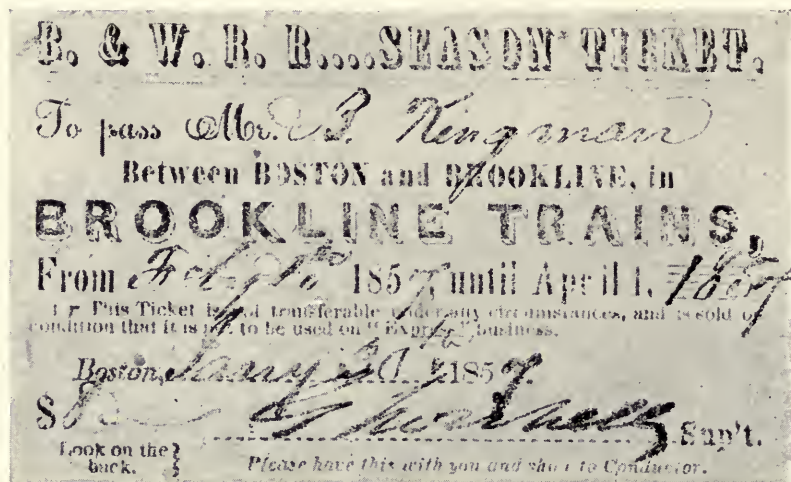 B. & W. R. R....SEASON TICKET.
To pass Mr. B. Kingman
Between BOSTON and BROOKLINE, in
BROOKLINE TRAINS,
From Feby 1st 1857 until April 1, 1857
This Ticket is not transferable under any circumstances, and is sold on
condition that it is not to be used on "Express" business.
Boston, 1857.
$ Sup't.
Look on the
back.
Please have this with you and show to Conductor.